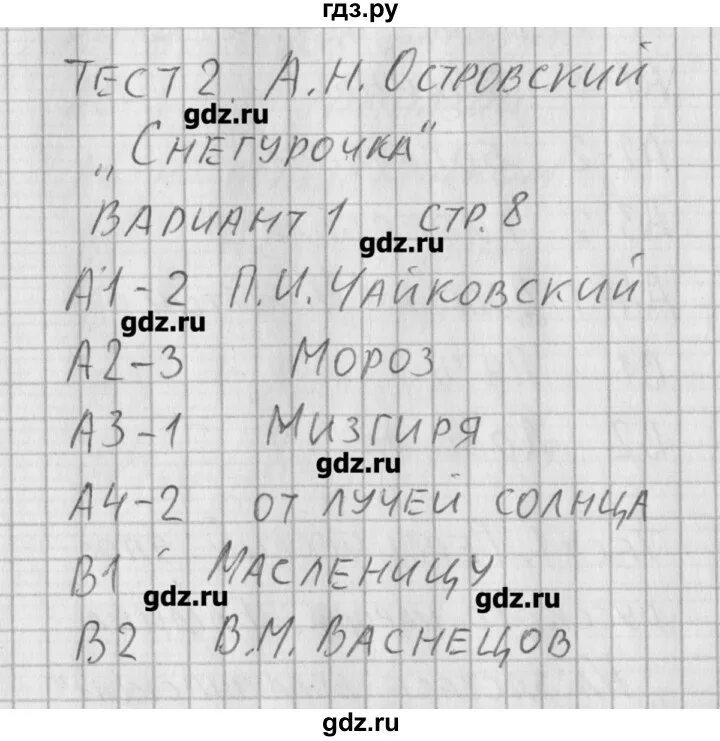 гдз.ру
ТЕСТ 2. А.Н. ОСТРОВСКИЙ
gdz.ru
„СНЕГУРОЧКА“
ВАРИАНТ 1 СТР. 8
gdz.ru
А1-2 П.И. ЧАЙКОВСКИЙ
gdz.ru
А2-3 МОРОЗ
А3-1 МИЗГИРЯ
gdz.ru
А4-2 ОТ ЛУЧЕЙ СОЛНЦА
В1 МАСЛЕНИЦУ
gdz.ru gdz.ru
В2 В.М. ВАСНЕЦОВ
gdz.ru